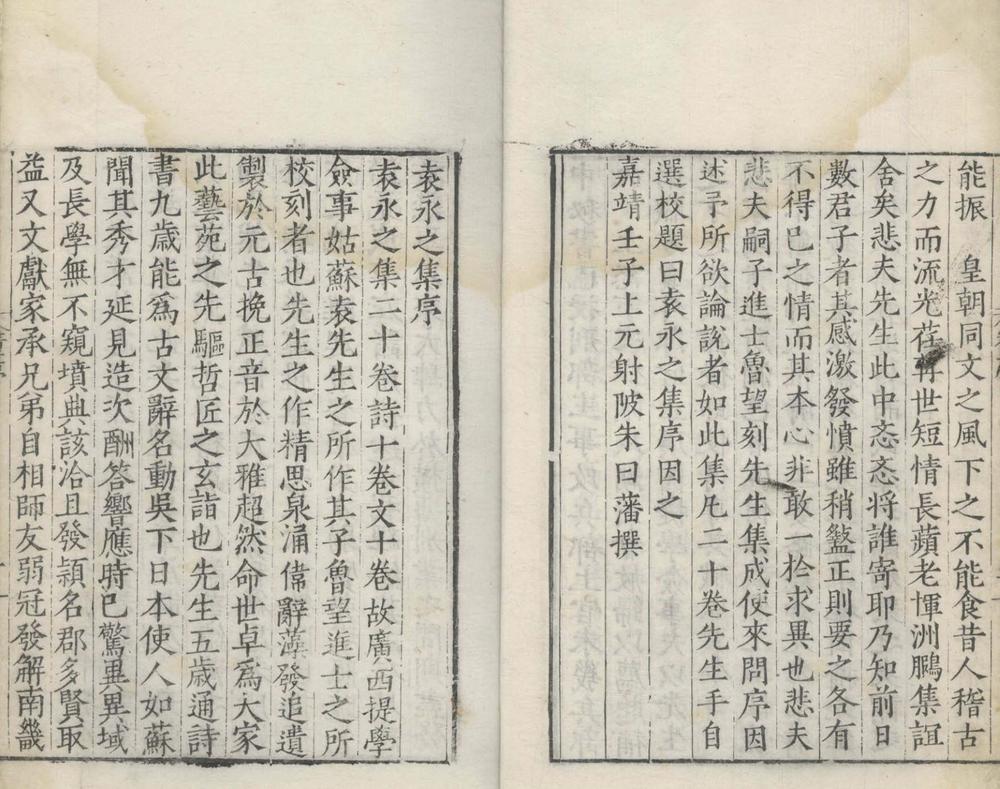 能振　皇朝同文之風下之不能食昔人稽古
之力而流光荏苒世短情長蘋老惲洲鵬集誼
舍矣悲夫先生此中忞忞将誰寄耶乃知前日
數君子者其感激發憤雖稍盭正則要之各有
不得已之情而其本心非敢一於求異也悲夫
悲夫嗣子進士魯望刻先生集成使來問序因
述予所欲論說者如此集凢二十卷先生手自
選校題曰袁永之集序因之
嘉靖壬子上元射陂朱曰藩撰
袁永之集序
袁永之集二十卷詩十卷文十卷故廣西提學
僉事姑蘇袁先生之所作其子魯望進士之所
校刻者也先生之作精思泉涌偉辭藻發追遺
製於元古挽正音於大雅超然命世卓爲大家
此藝苑之先驅哲匠之玄詣也先生五歲通詩
書九歲能爲古文辭名動吳下日本使人如蘇
聞其秀才延見造次酬答響應時已驚異異域
及長學無不窺墳典該洽且發穎名郡多賢取
益又文獻家承兄弟自相師友弱冠發解南畿